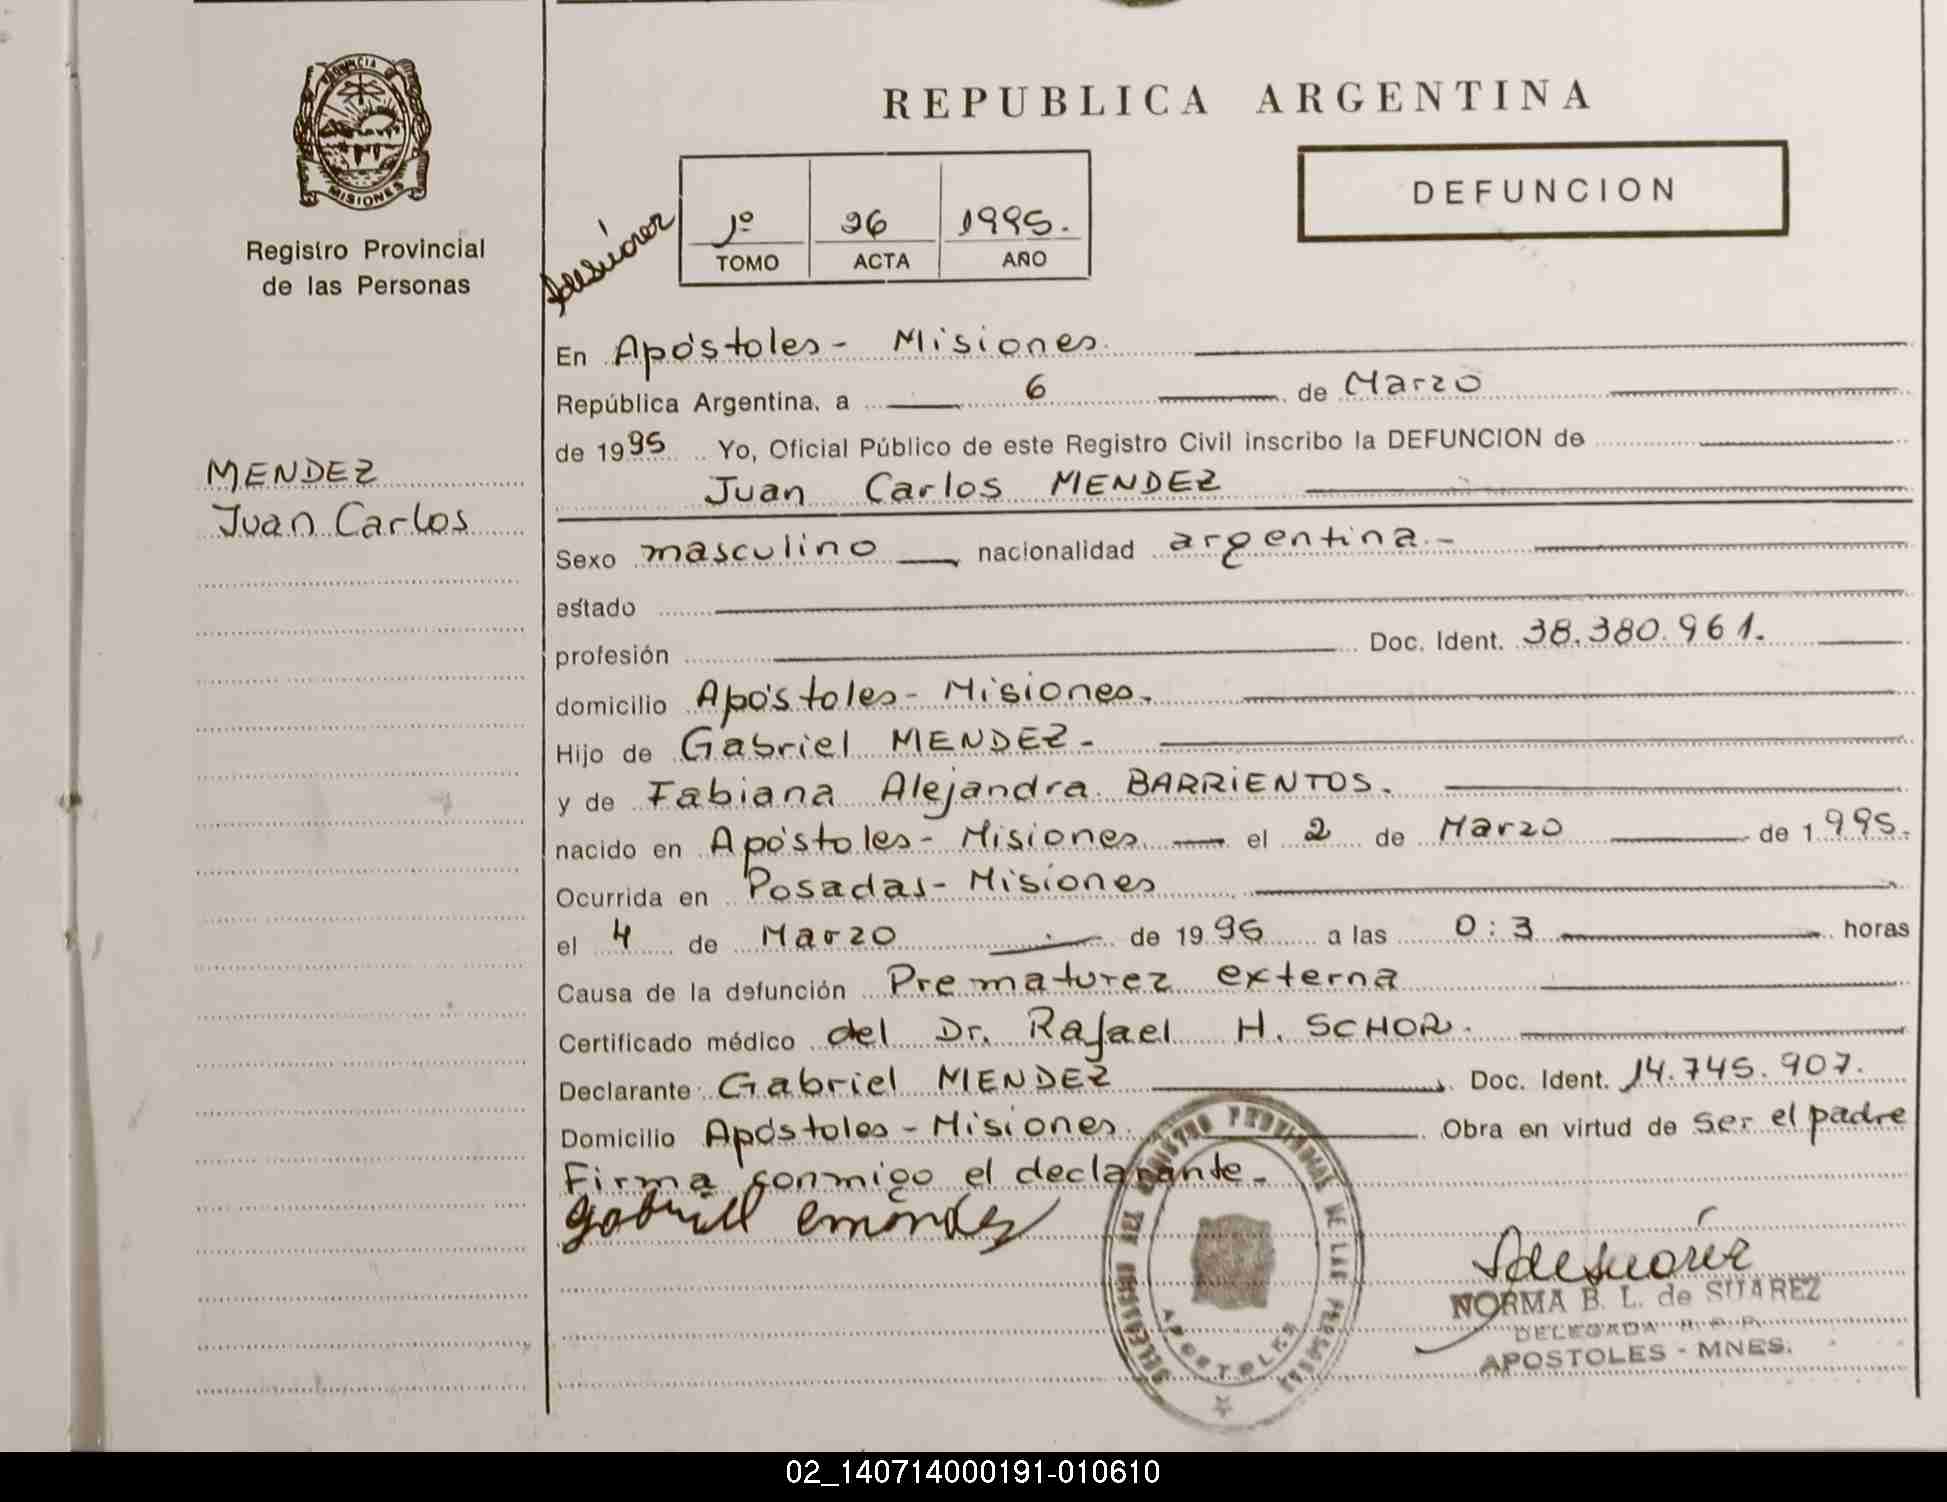 PROVINCIA DE
MISIONES
Registro Provincial
de las Personas
MENDEZ
Juan Carlos
REPUBLICA ARGENTINA
DEFUNCION
1º 96 1995.
TOMO ACTA AÑO
En Apóstoles - Misiones.
República Argentina, a 6 de Marzo
de 1995 Yo, Oficial Público de este Registro Civil inscribo la DEFUNCION de
Juan Carlos MENDEZ
Sexo masculino nacionalidad argentina.-
estado
profesión Doc. Ident. 38.380.961.
domicilio Apóstoles - Misiones.
Hijo de Gabriel MENDEZ -
y de Fabiana Alejandra BARRiENTOS.
nacido en Apóstoles - Misiones el 2 de Marzo de 1.995.
Ocurrida en Posadas - Misiones
el 4 de Marzo de 1995 a las 0:3 horas
Causa de la defunción Prematurez externa
Certificado médico del Dr. Rafael H. SCHOR.
Declarante Gabriel MENDEZ Doc. Ident. 14.745.907.
Domicilio Apóstoles - Misiones. Obra en virtud de ser el padre
Firma conmigo el declarante.
REGISTRO PROVINCIAL DE LAS PERSONAS
APOSTOLES
NORMA B. L. de SUAREZ
DELEGADA R. P. P.
APOSTOLES - MNES.
02_140714000191-010610